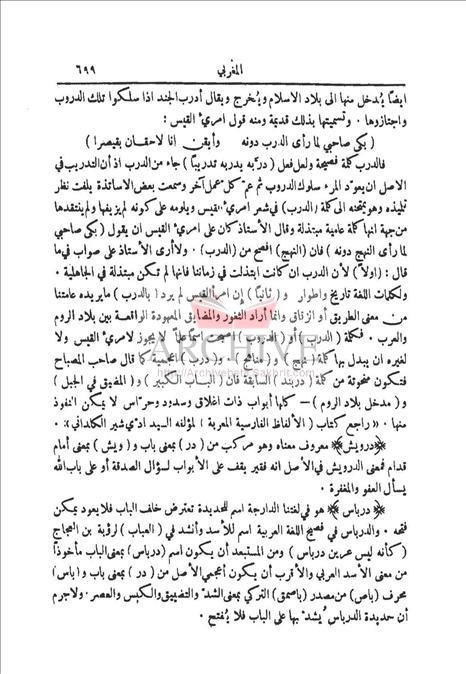 المغربي ٦٩٩
ايضًا يُدخل منها الى بلاد الاسلام ويُخرج ويقال أدرب الجند اذا سلكوا تلك الدروب
واجتازوها ٠ وتسميتها بذلك قديمة ومنه قول امرئ القيس :
( بكى صاحبي لما رأى الدرب دونه وأيقن انا لاحقان بقيصرا )
فالدرب كلمة فصيحة ولعل فعل ( درّبه يدربه تدريبًا ) جاء من الدرب اذ أن التدريب في
الاصل ان يعوّد المرء سلوك الدروب ثم عمّ كل عمل آخر وسمعت بعض الاساتذة يلفت نظر
تليذه وهو يمتحنه الى كلمة ( الدرب ) في شعر امرئ القيس ويلومه على كونه لم يزيفها ولم ينتقدها
من جهة انها كلمة عامية مبتذلة وقال الأستاذ كان على امرئ القيس ان يقول ( بكى صاحبي
لما رأى النهج دونه ) فان ( النهج ) افصح من ( الدرب ) ٠ ولا أرى الأستاذ على صواب في ما
قال : ( اولاً ) لأن الدرب ان كانت ابتذلت في زماننا فانها لم تكن مبتذلة في الجاهلية ٠
ولكلمات اللغة تاريخ واطوار و ( ثانيًا ) إن امرأ القيس لم يرد ( بالدرب ) ما يريده عامتنا
من معنى الطريق أو الزقاق وانما أراد الثغور والمضايق المعهودة الواقعة بين بلاد الروم
والعرب ٠ فكلمة ( الدرب ) أو ( الدروب ) اصبحت اسمًا علمًا لا يجوز لامرئ القيس ولا
لغيره ان يبدل بها كلمة ( نهج ) و ( مناهج ) ٠ و ( درب ) اعجمية كما قال صاحب المصباح
فتكون منحوتة من كلمة ( دربند ) السابقة فان ( الباب الكبير ) و ( المضيق في الجبل )
و ( مدخل بلاد الروم ) — كلها أبواب ذات اغلاق وسدود وحرّاس لا يمكن النفوذ
منها ٠ « راجع كتاب ( الألفاظ الفارسية المعربة ) لمؤلفه السيد ادّي شير الكلداني » ٠
﴿درويش﴾ معروف معناه وهو مركب من ( در ) بمعنى باب و ( ويش ) بمعنى أمام
قدام فمعنى الدرويش في الأصل انه فقير يقف على الأبواب لسؤال الصدقة أو على باب الله
يسأل العفو والمغفرة ٠
﴿درباس﴾ هو في لغتنا الدارجة اسم لحديدة تعترض خلف الباب فلا يعود يمكن
فتحه ٠ والدرباس في فصيح اللغة العربية اسم للأسد وأنشد في ( العباب ) لرؤبة بن العجاج
( كأنه ليس عرين درباس ) ومن المستبعد أن يكون اسم ( درباس ) بمعنى الباب مأخوذًا
من معنى الأسد العربي والأقرب أن يكون أعجمي الأصل من ( در ) بمعنى باب و ( باس )
محرف ( باص ) من مصدر ( باصمق ) التركي بمعنى الشد والتضييق والكبس والعصر ٠ ولا جرم
أن حديدة الدرباس يُشد بها على الباب فلا يُفتح ٠
ARCHIVE
http://Archivebeta.Sakhrit.com